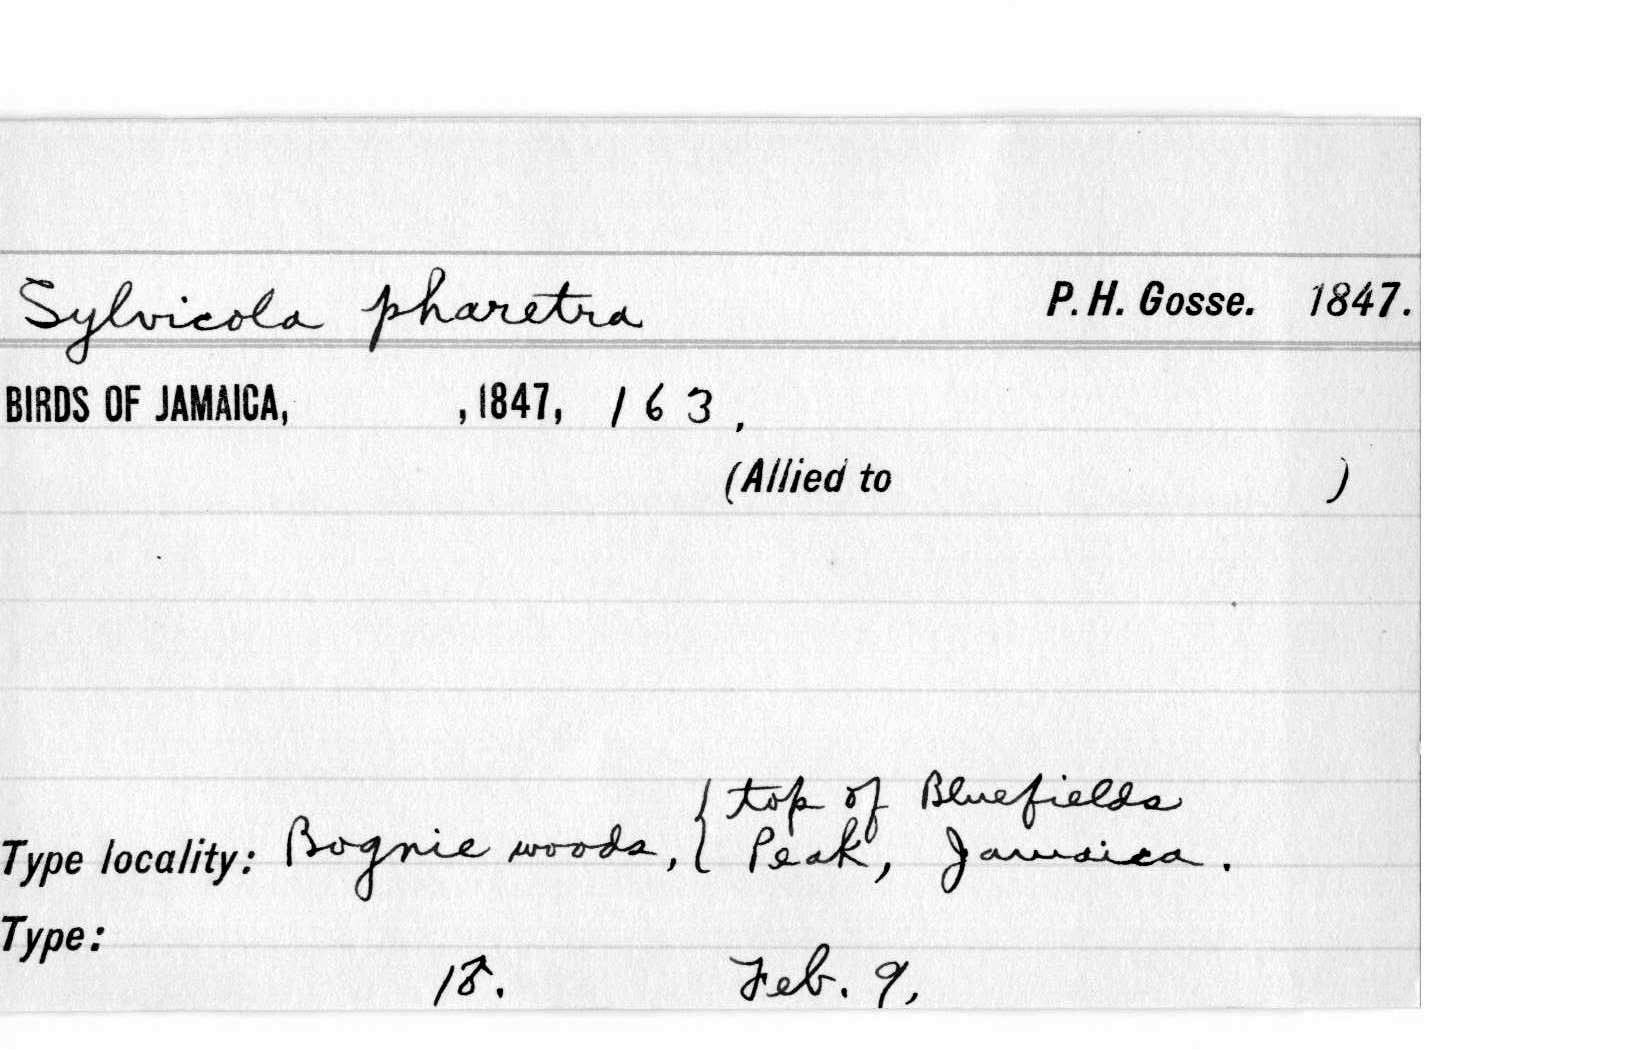 Sylvicola pharetra P. H. Gosse. 1847.
BIRDS OF JAMAICA, , 1847, 163,
(Allied to )
top of Bluefields
Type locality: Bognie woods, { Peak, Jamaica.
Type:
1♂. Feb. 9,